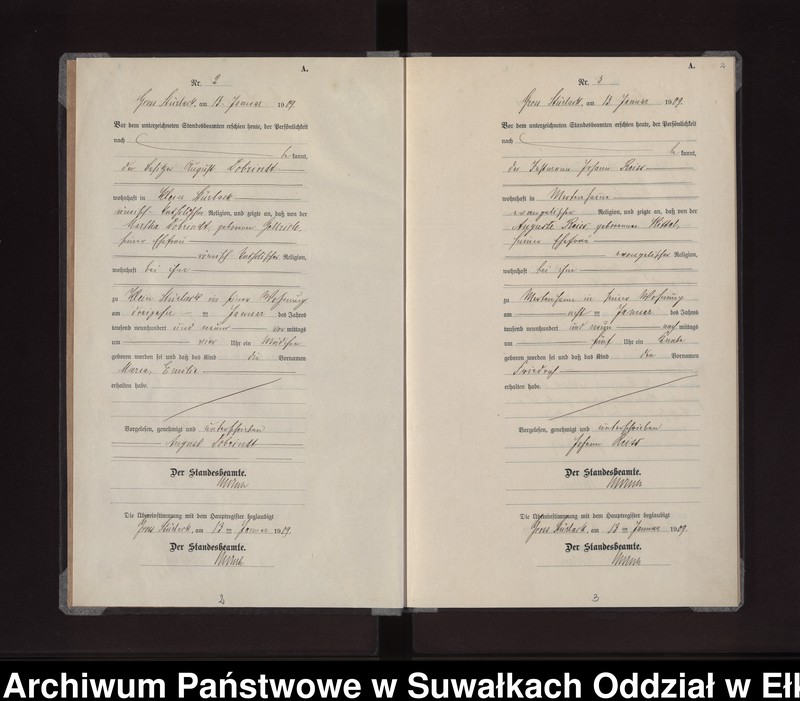 A.
Nr. 2
Gross Stürlack, am 13. Januar 1909.
Vor dem unterzeichneten Standesbeamten erschien heute, der Persönlichkeit
nach
be kannt,
der Besitzer August Dobrindt
wohnhaft in Klein Stürlack
römisch katholischer Religion, und zeigte an, daß von der
Martha Dobrindt, geborenen
seiner Ehefrau
römisch katholischer Religion,
wohnhaft bei ihm
zu Klein Stürlack in seiner Wohnung
am Januar des Jahres
tausend neunhundert und neun vor mittags
um vier Uhr ein Mädchen
geboren worden sei und daß das Kind die Vornamen
Maria, Emilie
erhalten habe.
Vorgelesen, genehmigt und unterschrieben
August Dobrindt
Der Standesbeamte.
Die Übereinstimmung mit dem Hauptregister beglaubigt
Gross Stürlack, am 13 ten Januar 1909.
Der Standesbeamte.
2
A.
2
Nr. 3
Gross Stürlack, am 13. Januar 1909.
Vor dem unterzeichneten Standesbeamten erschien heute, der Persönlichkeit
nach
be kannt,
der Instmann Johann Reiss
wohnhaft in Mertenheim
evangelischer Religion, und zeigte an, daß von der
Auguste Reiss geborenen
seiner Ehefrau
evangelischer Religion,
wohnhaft bei ihm
zu Mertenheim in seiner Wohnung
am acht ten Januar des Jahres
tausend neunhundert und neun nach mittags
um fünf Uhr ein Knabe
geboren worden sei und daß das Kind den Vornamen
Friedrich
erhalten habe.
Vorgelesen, genehmigt und unterschrieben
Johann Reiss
Der Standesbeamte.
Die Übereinstimmung mit dem Hauptregister beglaubigt
Gross Stürlack, am 13 ten Januar 1909.
Der Standesbeamte.
3
Archiwum Państwowe w Suwałkach Oddział w Ełk